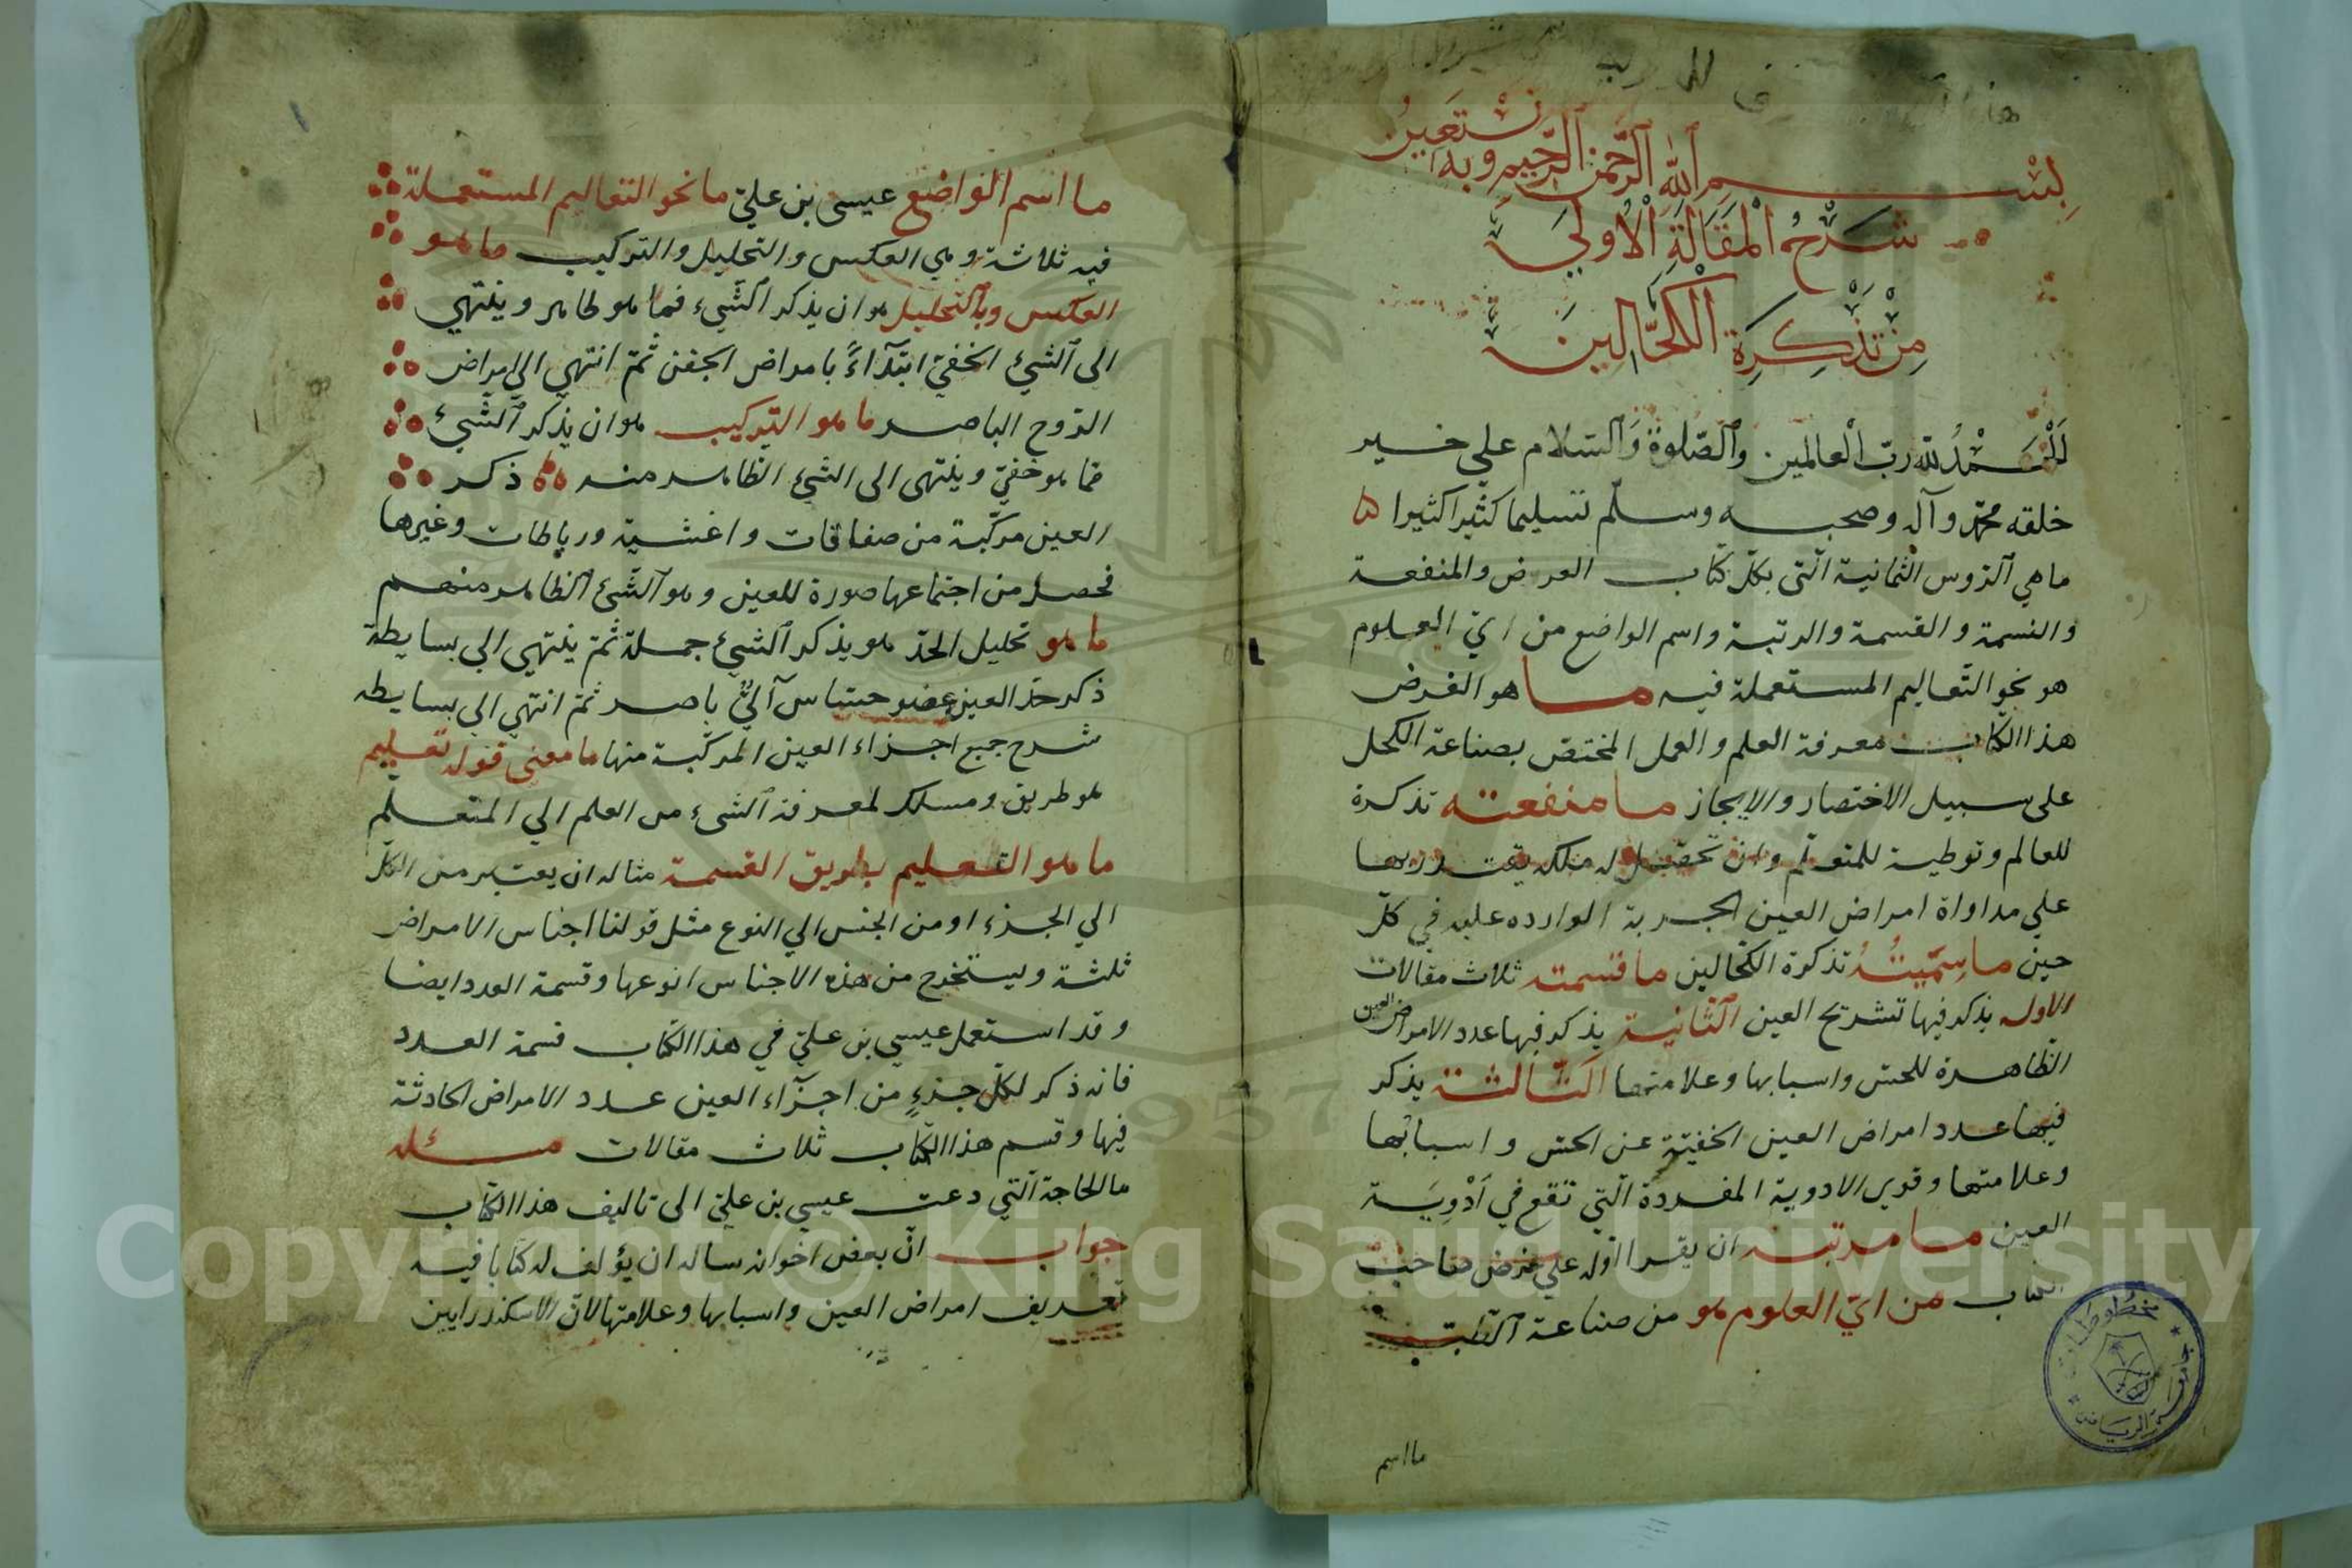 بسم الله الرحمن الرحيم وبه نستعين
شرح المقالة الاولي
من تذكرة الكحالين
الحمد لله رب العالمين والصلوة والسلام علي خير
خلقه محمد وآله وصحبه وسلم تسليما كثيرا كثيرا
ما هي الرؤس الثمانية التي بكل كتاب الغرض والمنفعة
والنسمة والقسمة والرتبة واسم الواضع من اي العلوم
هو نحو التعاليم المستعملة فيه ما هو الغرض
هذا الكتاب معرفة العلم والعمل المختص بصناعة الكحل
على سبيل الاختصار والايجاز ما منفعته تذكرة
للعالم وتوطية للمتعلم وان تحصل له ملكه يقتدر بها
علي مداواة امراض العين الجربة الوارده عليه في كل
حين ما سميته تذكرة الكحالين ما قسمته ثلاث مقالات
الاوله يذكر فيها تشريح العين الثانية يذكر فيها عدد الامراض العين
الظاهرة للحس واسبابها وعلامتها الثالثة يذكر
فيها عدد امراض العين الخفية عن الحس واسبابها
وعلامتها وقوي الادوية المفردة التي تقع في أدوية
العين ما مرتبته ان يقرا اوله علي غرض صاحب
الكتاب من اي العلوم هو من صناعة الطب
ما اسم
ما اسم الواضع عيسى بن علي ما نحو التعاليم المستعملة
فيه ثلاثة وهي العكس والتحليل والتركيب ما هو
العكس وبالتحليل هو ان يذكر الشيء فما هو ظاهر وينتهي
الى الشيء الخفي ابتدآءً بامراض الجفن ثم انتهي الي امراض
الروح الباصر ما هو التركيب هو ان يذكر الشيء
فما هو خفي وينتهى الى الشيء الظاهر منه ذكر
العين مركبة من صفاقات واغشية ورباطات وغيرها
فحصل من اجتماعها صورة للعين وهو الشيء الظاهر منهم
ما هو تحليل الحد هو يذكر الشيء جملة ثم ينتهي الي بسايطة
ذكر حد العين عضو حساس آلي باصر ثم انتهي الي بسايطه
شرح جميع اجزاء العين المركبة منها ما معنى قوله تعليم
هو طريق ومسلك لمعرفة الشيء من العلم الي المتعلم
ما هو التعليم بطريق القسمة مثاله ان يعتبر من الكل
الي الجزء او من الجنس الي النوع مثل قولنا اجناس الامراض
ثلثة ويستخرج من هذه الاجناس انوعها وقسمة العدد ايضا
وقد استعمل عيسي بن علي في هذا الكتاب قسمة العدد
فانه ذكر لكل جزءٍ من اجزآء العين عدد الامراض الحادثة
فيها وقسم هذا الكتاب ثلاث مقالات مسئله
ما الحاجة التي دعت عيسي بن علي الى تاليف هذا الكتاب
جواب ان بعض اخوانه ساله ان يؤلف له كتابا فيه
تعريف امراض العين واسبابها وعلامتها لان الاسكندرايين
مخطوطات
جامعة الرياض
1957
Copyright © King Saud University